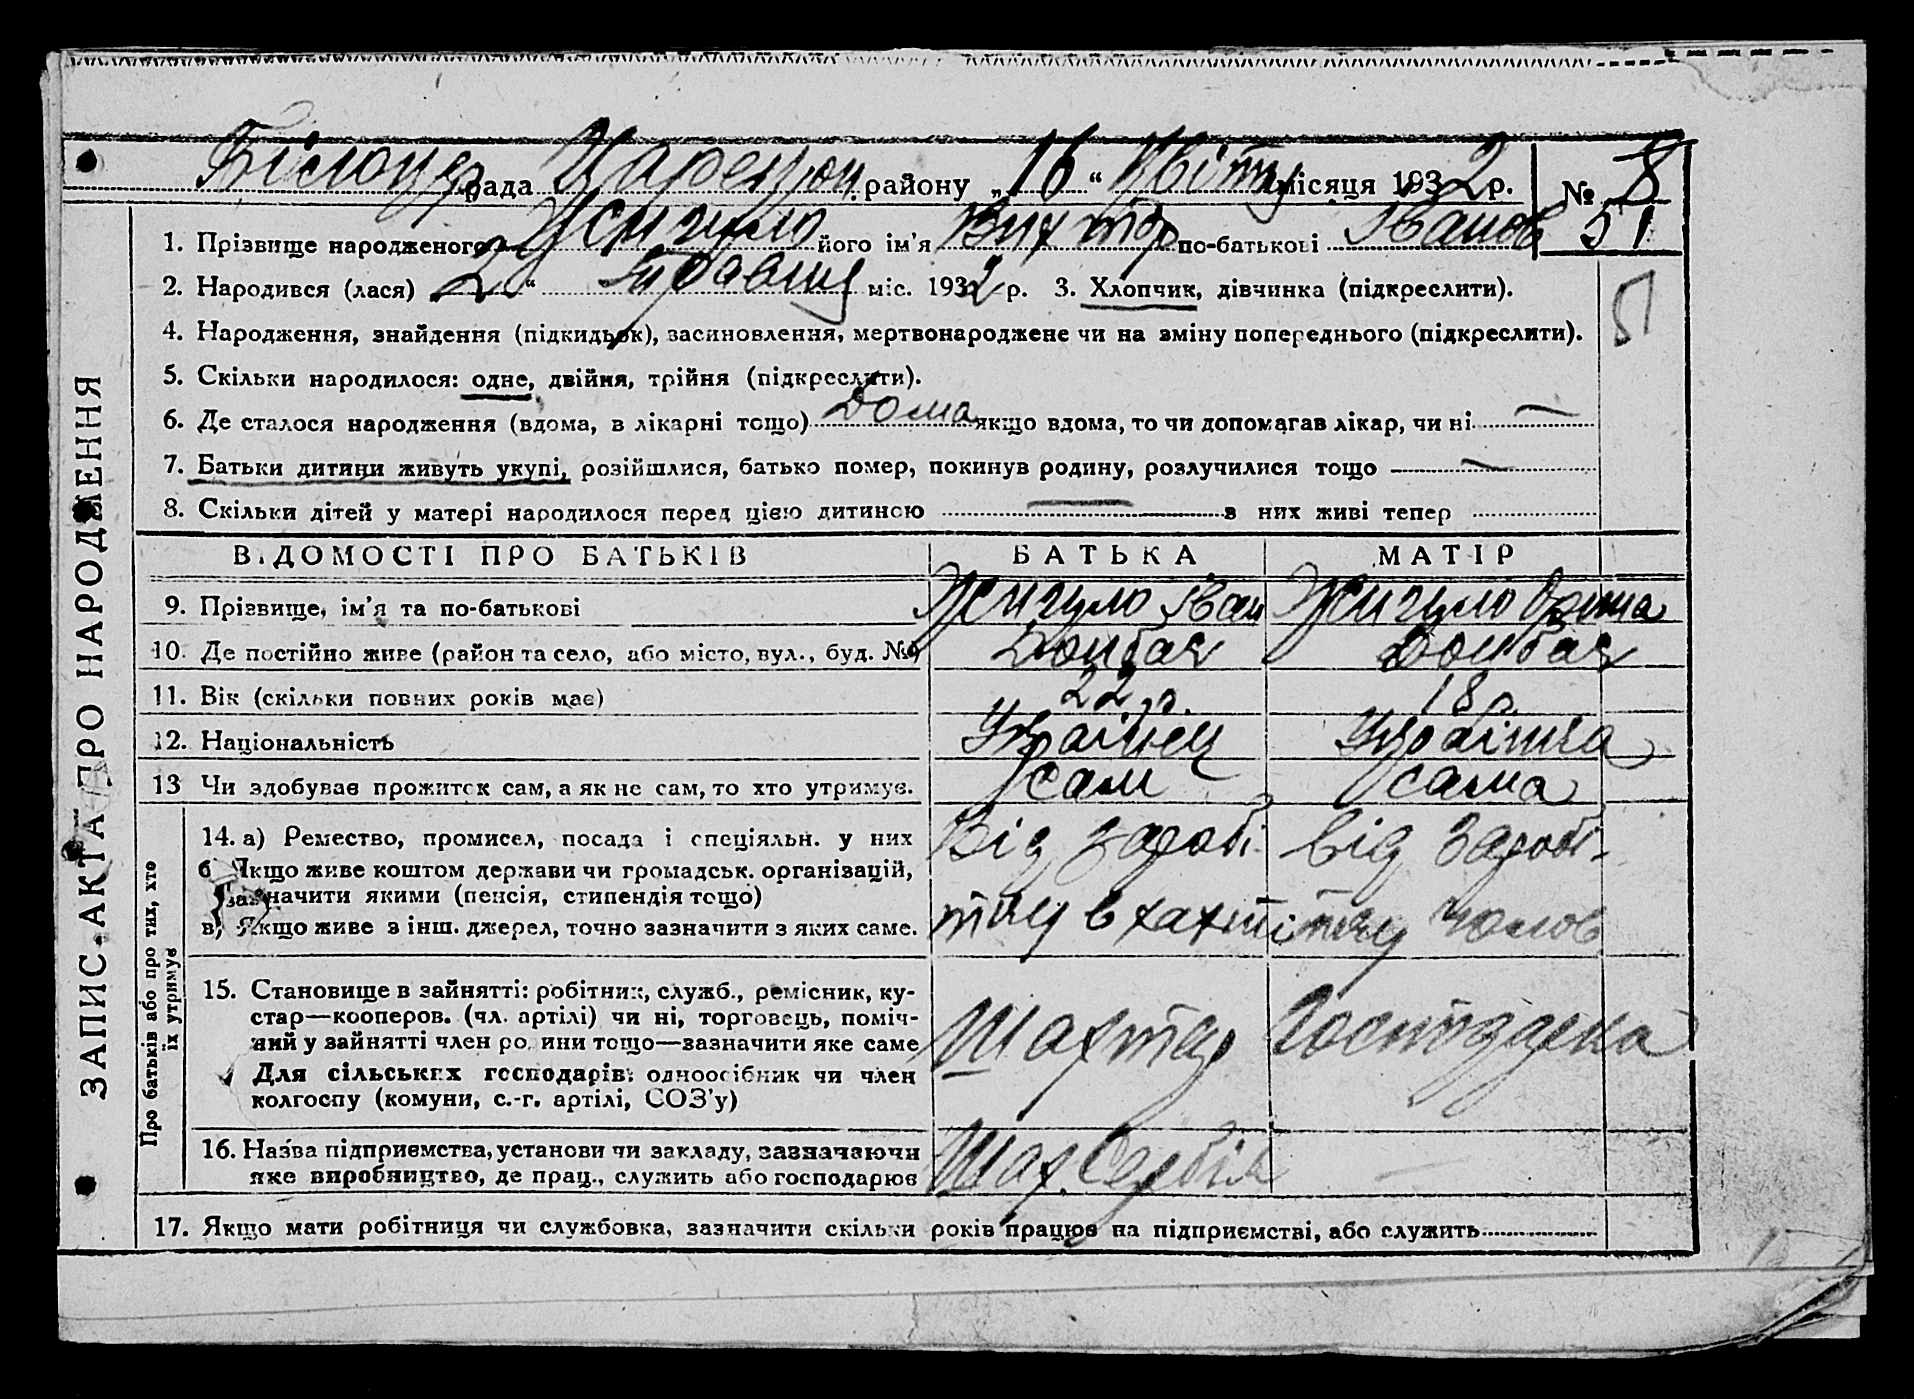 Білоцер рада Царечан району „16“ Квітня місяця 1932 р. № 8
51
1. Прізвище народженого Жигуло його ім'я Виктор по-батькові Іванов
2. Народився (лася) „2“ Травня міс. 1932 р. 3. Хлопчик, дівчинка (підкреслити).
51
4. Народження, знайдення (підкидьок), засиновлення, мертвонароджене чи на зміну попереднього (підкреслити).
5. Скільки народилося: одне, двійня, трійня (підкреслити).
6. Де сталося народження (вдома, в лікарні тощо) Дома якщо вдома, то чи допомагав лікар, чи ні —
7. Батьки дитини живуть укупі, розійшлися, батько помер, покинув родину, розлучилися тощо —
8. Скільки дітей у матері народилося перед цією дитиною — в них живі тепер
ВІДОМОСТІ ПРО БАТЬКІВ БАТЬКА МАТІР
9. Прізвище, ім'я та по-батькові Жигуло Іван Жигуло Орина
10. Де постійно живе (район та село, або місто, вул., буд. №) Донбас Донбас
11. Вік (скільки повних років має) 22 р. 18 р.
12. Національність Українец Українка
13 Чи здобуває прожиток сам, а як не сам, то хто утримує. сам сама
14. а) Ремество, промисел, посада і спеціяльн. у них Від заробі- від заробі-
б) Якщо живе коштом держави чи громадськ. організацій,
зазначити якими (пенсія, стипендія тощо)
в) Якщо живе з інш. джерел, точно зазначити з яких саме. тку в шахті тку чолов
15. Становище в зайнятті: робітник, служб., ремісник, ку-
стар—кооперов. (чл. артілі) чи ні, торговець, поміч-
ний у зайнятті член родини тощо—зазначити яке саме Шахтар Господарка
Для сільських господарів: одноосібник чи член
колгоспу (комуни, с.-г. артілі, СОЗ'у)
16. Назва підприємства, установи чи закладу, зазначаючи
яке виробництво, де прац., служить або господарює Шах. —
17. Якщо мати робітниця чи службовка, зазначити скільки років працює на підприємстві, або служить
ЗАПИС-АКТА ПРО НАРОДЖЕННЯ
Про батьків або про тих, хто
їх утримує